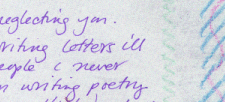 neglecting you.
writing letters i'll
people i never
writing poetry